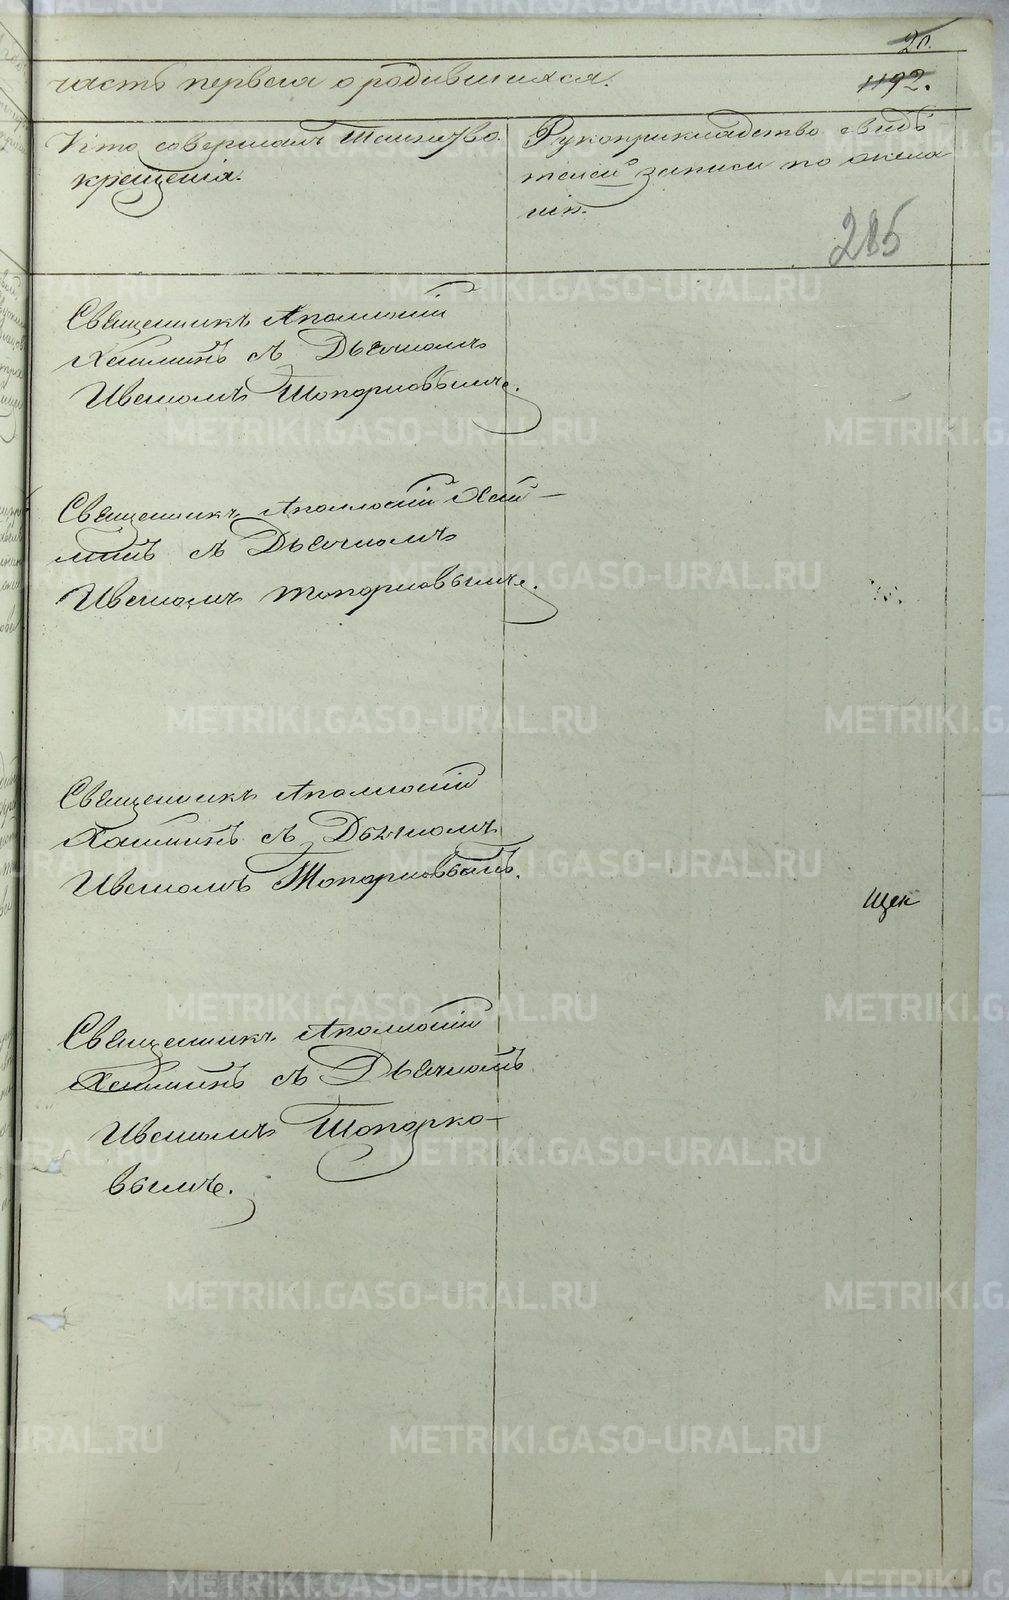 20.
часть первая о родившихся.
1192.
Кто совершалъ таинство
крещенія.
Рукоприкладство свидѣ
телей записи по жела
нію.
285
Священникъ Аполлоній
Хаминъ съ Дьячкомъ
Иваномъ Топорковымъ.
Священникъ Аполлоній Ха–
минъ съ Дьячкомъ
Иваномъ Топорковымъ.
Священникъ Аполлоній
съ Дьячкомъ
Иваномъ Топорковымъ.
Щек
Священникъ Аполлоній
съ Дьячкомъ
Иваномъ Топорко–
вымъ.
METRIKI.GASO-URAL.RU